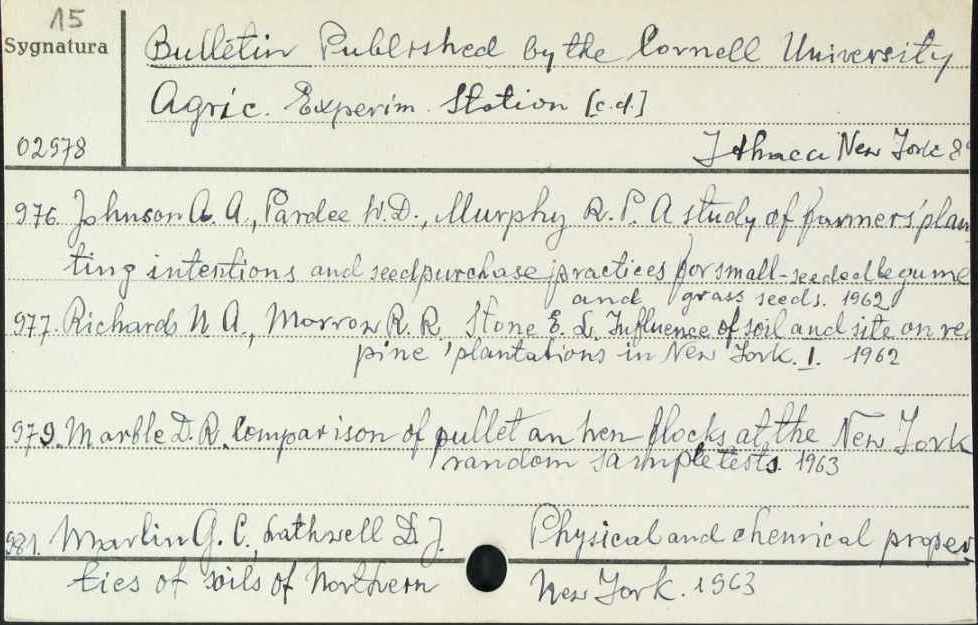 15
Sygnatura
Bulletin Published by the Cornell University
Agric. Experim. Station [c.d.]
02978
Ithaca New York 8°
976. Johnson A. A., Pardee W.D., Murphy R. P. A study of farmers' plan
ting intentions and seed purchase practices for small-seeded legume
and grass seeds. 1962
977. Richards N. A., Morrow R. R. Stone E. L. Influence of soil and site on re
pine plantations in New York. I. 1962
979. Marble D. R. Comparison of pullet an hen flocks at the New York
random sample tests. 1963
981. Marlin G. C., Lathwell D. J. Physical and chemical proper
ties of soils of Northern New York. 1963